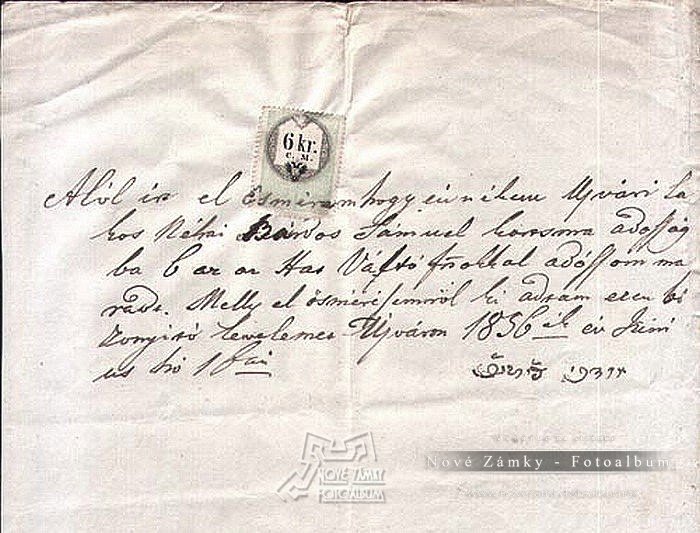 6 kr.
C. M.
Alól irt el Esmérem hogy én nékem Ujvári la
kos Néhai Bárdos Sámuel korsma adosság
ba 6 az az Hat Váltó frtokkal adóssom ma
radt. Melly el ösmérésemröl ki adtam ezen bi
zonyitó levelemet Ujváron 1856ik év Juni
us hó 18án
NOVÉ ZÁMKY
FOTOALBUM
Nové Zámky - Fotoalbum